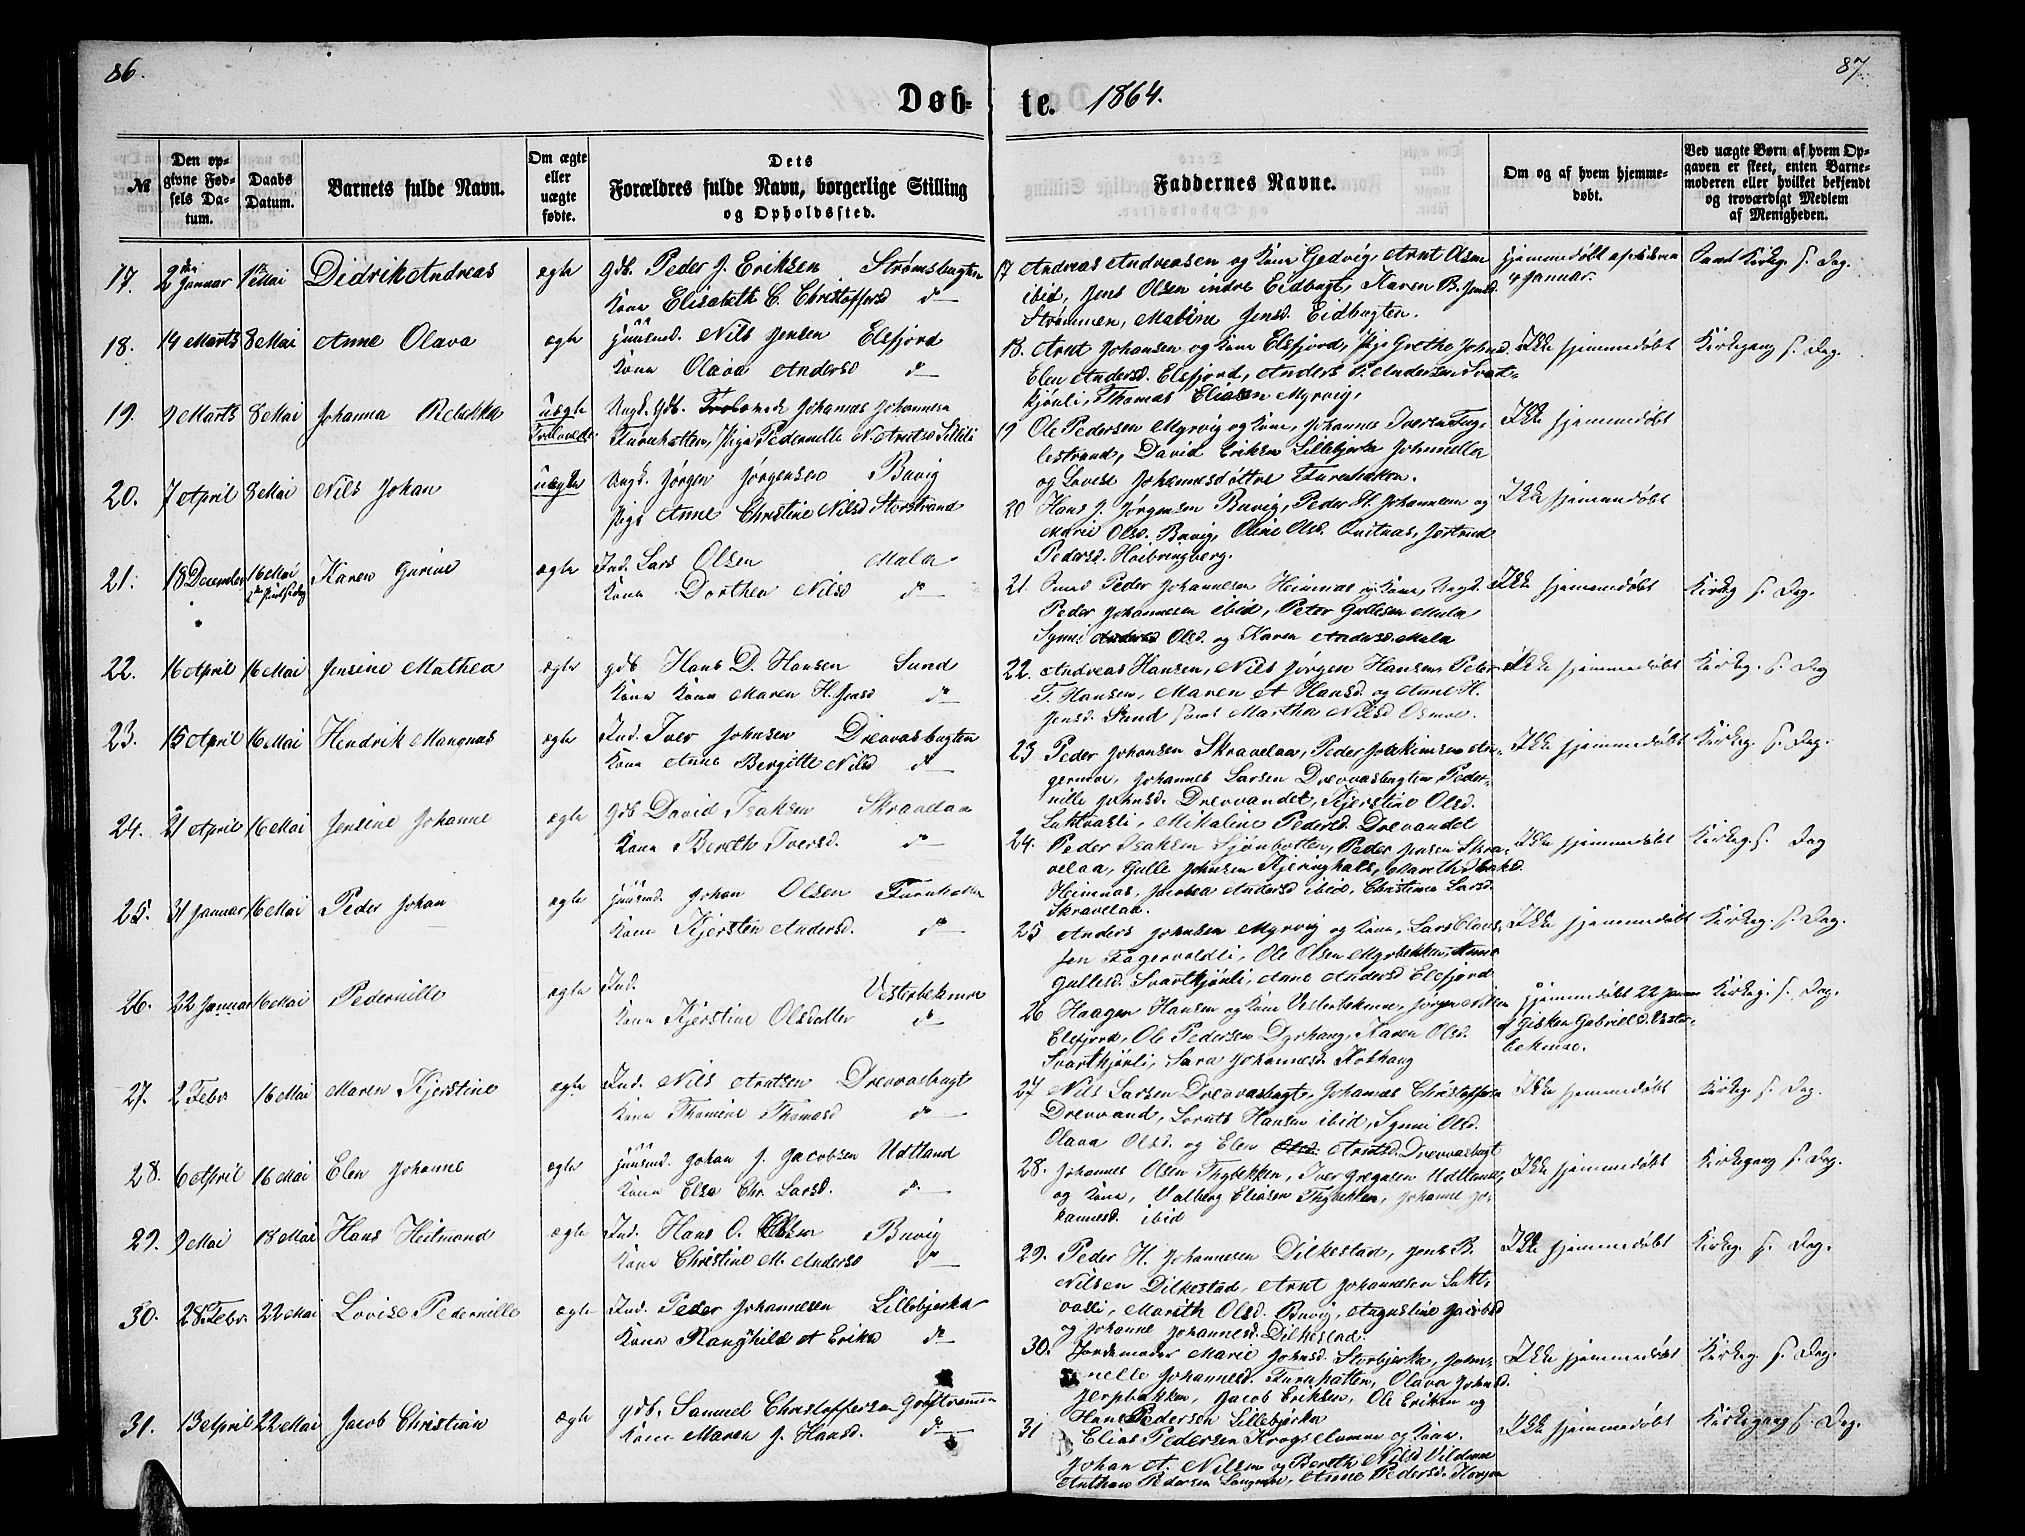 86.
87.
Døb-
te. 1864.
№
Den op-
givne Fød-
sels Da-
tum.
Daabs
Datum.
Barnets fulde Navn.
Om ægte
eller
uægte
fødte.
Dets
Forældres fulde Navn, borgerlige Stilling
og Opholdssted.
Faddernes Navne.
Om og af hvem hjemme-
døbt.
Ved uægte Børn af hvem Op-
gaven er skeet, enten Barne-
moderen eller hvilket bekjendt
og troværdigt Medlem
af Menigheden.
17. 2den Januar 1ste Mai Didrik Andreas ægte gdb. Peder J. Eriksen Strømsbugten
Kone Elisabeth C. Christoffersd do
17 Andreas Andreasen og Kone Hedvig, Arnt Olsen
ibid, Jens Olsen indre Eidbugt, Karen B. Jensd.
Strømmen, Maline Jensd. Eidbugten.
Hjemmedøbt
Januar.
Kirkg. s. Dag.
18. 14 Marts 8 Mai Anne Olava ægte Huusmd. Nils Jensen Elsfjord
Kone Olava Andersd do
18. Arnt Johansen og Kone Elsfjord, Pige Grethe Johnsd.
Elen Andersd. Elsfjord, Anders P. Andersen Svart-
kjønli, Thomas Eliasen Myrvig,
Ikke hjemmedøbt
Kirkegang s. Dag.
19. 9 Marts 8 Mai Johanna Rebekka uægte
Trolovede
Ungk. gdb. Trolovede Johannes Johannesen
Furuhatten, Pige Pedernille N. Arntsd
19 Ole Pedersen Myrvig og Kone, Johannes Iversen Fug-
lestrand, David Eriksen Lillebjerka
og Lovise Johannesdotter Furuhatten.
Ikke hjemmedøbt
20. 7 April 8 Mai Nils Johan uægte Ungk. Jørgen Jørgensen Buvig
Pige Anne Christine Nilsd Storstrand
20 Hans J. Jørgensen Buvig, Peder H. Johannesen og
Marie Olsd. Buvig, Oline Olsd.
Pedersd. Høibringberg.
Ikke hjemmedøbt
21. 18 December 16 Mai
2den Pintsedag
Karen Gurine ægte Ind. Lars Olsen Mula
Kone Dorthea Nilsd do
21. Peder Johannesen Heimnes og Kone, Ungk.
Peder Johannesen ibid, Peter Gullesen Mula
Synni Olsd. og Karen Andersd. Mula
Ikke hjemmedøbt
Kirkg. s. Dag.
22. 16 April 16 Mai Jensine Mathea ægte gdb Hans D. Hansen Sund
Kone Kone Maren H. Jensd do
22. Andreas Hansen, Nils Jørgen Hansen, Peter
T. Hansen, Maren A Hansd. og Anne H.
Jensd. Sund samt Martha Nilsd Osmoe.
Ikke hjemmedøbt
Kirkeg. s. Dag
23. 15 April 16 Mai Hendrik Mangnus ægte Ind. Iver Johnsen Drevvasbugten
Kone Anne Bergitte Nilsd do
23 Peder Johansen Skravelaa, Peder Joakimsen An-
germoe, Johannes Larsen Drevvasbugten, Peder-
nille Johnsd. Drevvandet, Kjerstine Olsd.
Luktvasli, Mikaline Pedersd. Drevvandet
Ikke hjemmedøbt
Kirkeg. s. Dag.
24. 21 April 16 Mai Jensine Johanne ægte Gdb David Isaksen Skravelaa
Kone Bereth Iversd. do
24. Peder Isaksen Sjonbotten, Peder Jensen Skra-
velaa, Gulle Johnsen Kjeringhals, Mareth Isaksd
Heimnas, Andersd ibid, Christina Larsd.
Skravelaa.
Ikke hjemmedøbt
Kirkeg. s. Dag
25. 31 Januar 16 Mai Peder Johan ægte Huusmd. Johan Olsen Furuhatten
Kone Kjersten Andersd. do
25 Anders Johnsen Myrvig og Kone, Lars Claus-
sen Fagervoldli, Ole Olsen Myrbekken, Anne
Gullesd. Svartkjønli, Ane Andersd Elsfjord
Ikke hjemmedøbt
Kirkeg. s. Dag.
26. 22 Januar 16 Mai Pedernille ægte Ind. Vesterbekmoe
Kone Kjerstine Olsdatter do
26 Haagen Hansen og Kone Vesterbekmoe, Jørgen Nilsen
Elsfjord, Ole Pedersen Dyrhaug, Karen Olsd.
Svartkjønli, Sara Johannesd. Kobhaug
Hjemmedøbt 22 Januar
af Gisken Gabrielsd. Vester-
bekmoe.
Kirkeg. s. Dag.
27. 2 Febr 16 Mai Maren Kjerstine ægte Ind. Nils Arntsen Drevvasbugt
Kone Thomine Thomasd do
27 Nils Larsen Drevvasbugt, Johannes Christoffersen
Drevvand, Hansen ibid, Synni Olsd.
Olava Olsd. og Elen Olsd. Arntsd. Drevvasbugt
Ikke hjemmedøbt
Kirkeg. s. Dag.
28. 6 April 16 Mai Elen Johanne ægte Huusmd. Johan J. Jacobsen Udtland
Kone Else Chr. Larsd. do
28. Johannes Olsen Thybekken, Iver Gregusen Udtland,
og Kone, Valberg Eliasen Thybekken, Johanne Jo-
hannesd. ibid
Ikke hjemmedøbt
Kirkegang s. Dag.
29. 9 Mai 18 Mai Hans Heitmand ægte Ind. Hans O. Buvig
Kone Christine M. Andersd do
29. Peder H. Johannesen Dilkestad, Jens B.
Nilsen Dilkestad, Arnt Johannesen Lukt-
vasli, Marith Olsd. Buvig, Augustine Jacobsd
og Johanne Johannesd. Dilkestad.
Ikke hjemmedøbt
Kirkeg. s. Dag.
30. 28 Febr. 22 Mai Lovise Pedernille ægte Ind. Peder Johannesen Lillebjerka
Kone Ranghild A Eriksd do
30. Jordemoder Marie Johnsd. Storbjerka, John-
nelle Johannesd. Furuhatten, Olava Johnsd.
Jerpbakken, Jacob Eriksen, Ole Eriksen og
Hans Pedersen Lillebjerka
Ikke hjemmedøbt
Kirkeg. s. Dag.
31. 13 April 22 Mai Jacob Christian ægte gdb. Samuel Christoffersen
Kone Maren J. Hansd. do
31 Elias Pedersen og Kone.
Johan A. Nilsen og Bereth Nilsd Vildmoe
Anthon Pedersen Langmoe, Anne Pedersd.
Ikke hjemmedøbt
Kirkegang s. Dag.